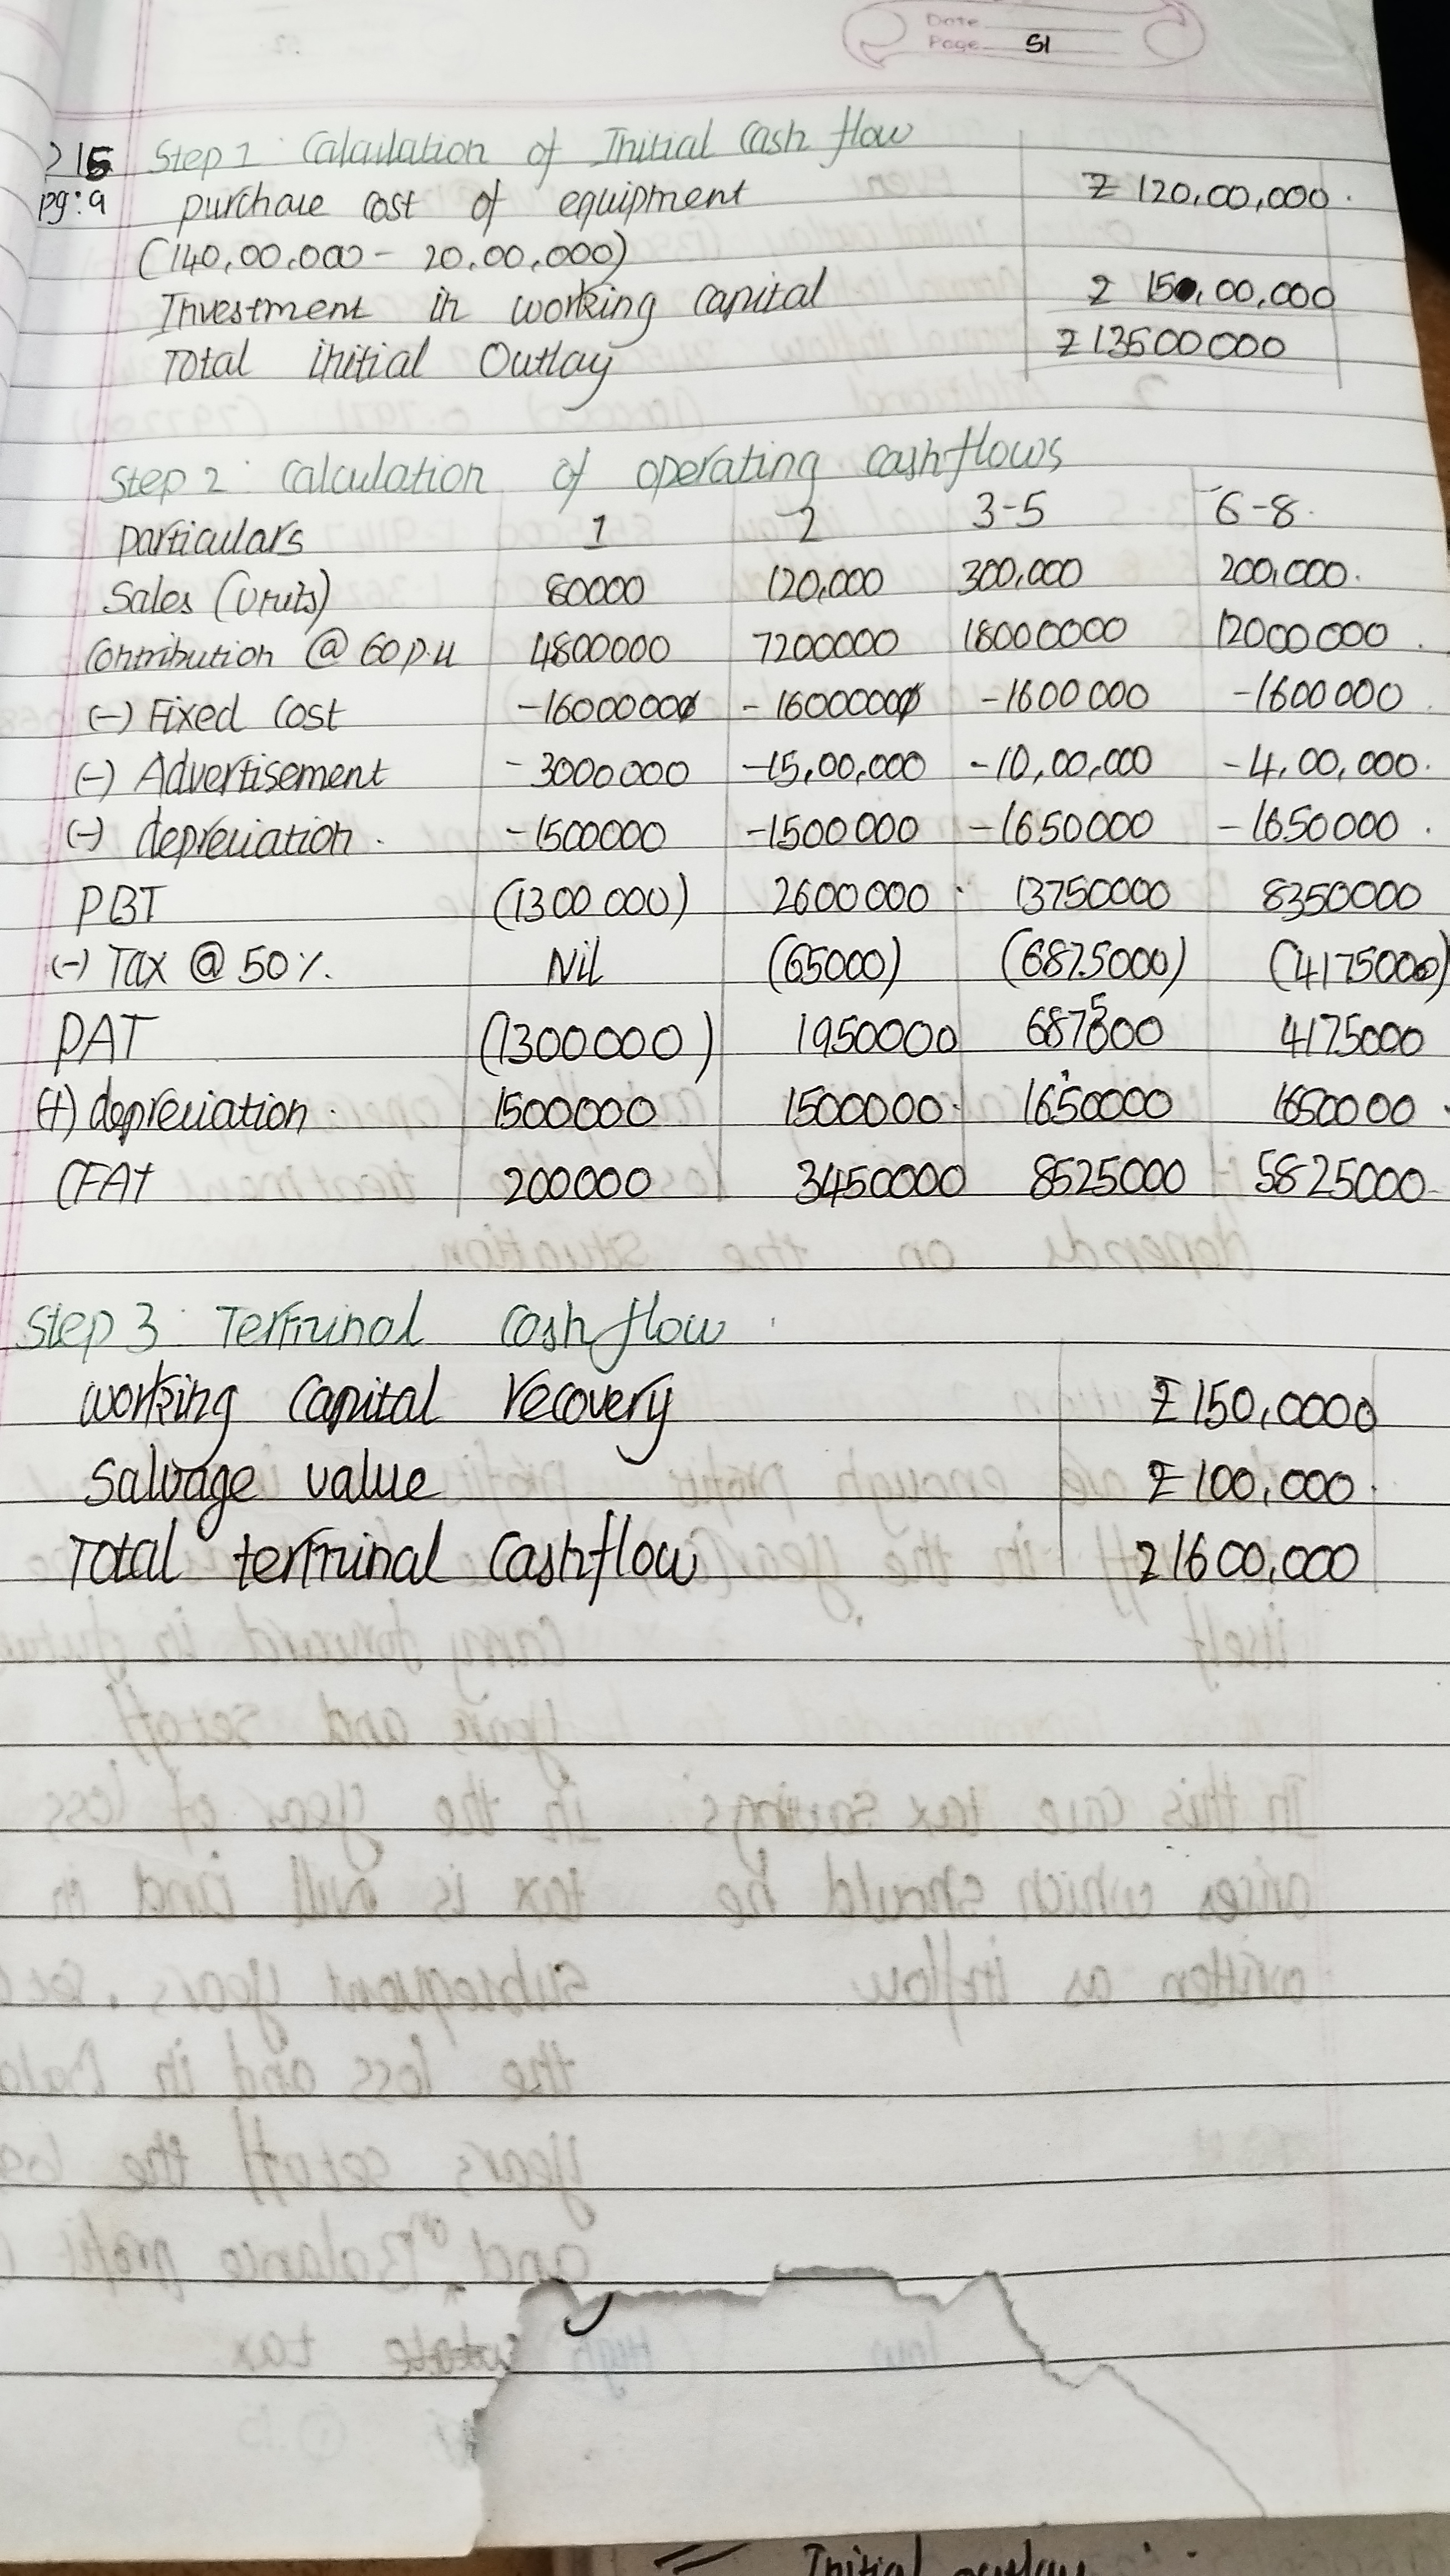 Date
Page 51
215 Step 1: Calculation of Initial Cash flow
pg:9 purchase cost of equipment ₹ 120,00,000.
(140,00,000 - 20,00,000)
Investment in working capital ₹ 150,00,000
Total initial Outlay ₹13500000
Step 2: Calculation of operating cashflows
particulars 1 2 3-5 6-8.
Sales (Units) 80000 120,000 300,000 200,000.
Contribution @ 60 p.u 4800000 7200000 18000000 12000000.
(-) Fixed Cost -1600000 -1600000 -1600000 -1600000
(-) Advertisement -3000000 -15,00,000 -10,00,000 -4,00,000.
(-) depreciation. -1500000 -1500000 -1650000 -1650000.
PBT (1300000) 2600000 13750000 8350000
(-) Tax @ 50%. Nil (65000) (6875000) (4175000)
PAT (1300000) 1950000 6875000 4175000
(+) depreciation. 1500000 1500000. 1650000 1650000
CFAT 200000 3450000 8525000 5825000
Step 3: Terminal Cash flow
working Capital recovery ₹150,0000
Salvage value ₹100,000.
Total terminal Cashflow ₹1600,000
Initial outlay